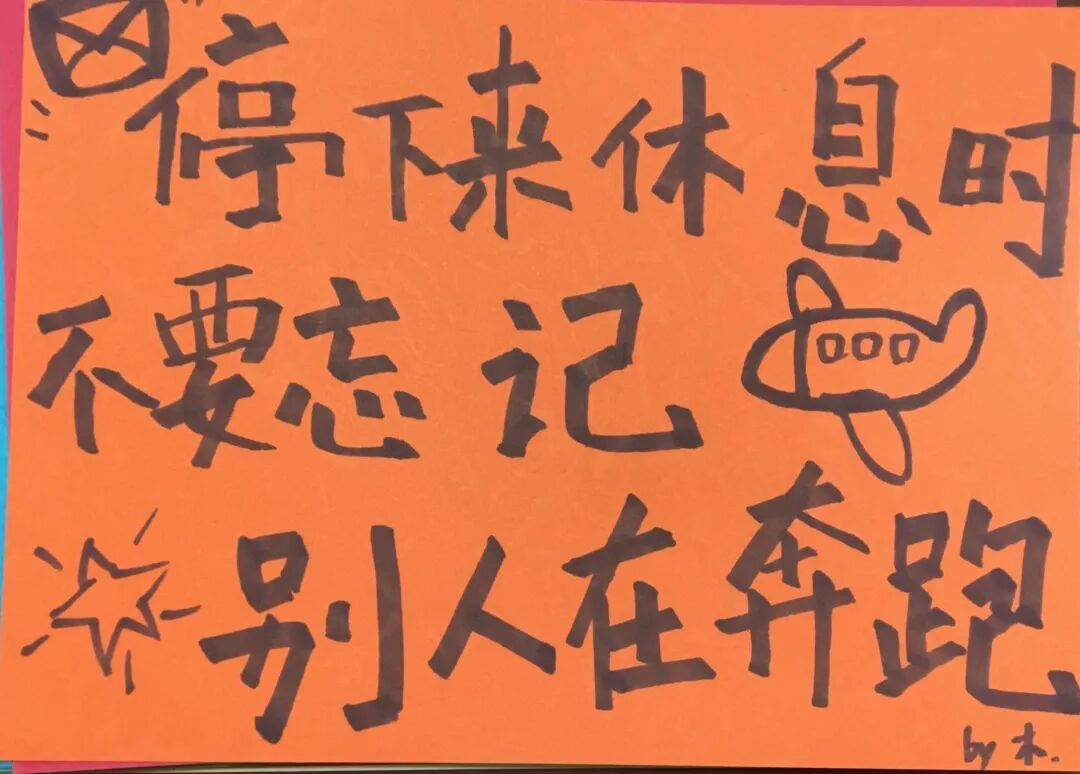 停下来休息时
不要忘记
别人在奔跑
by 木.